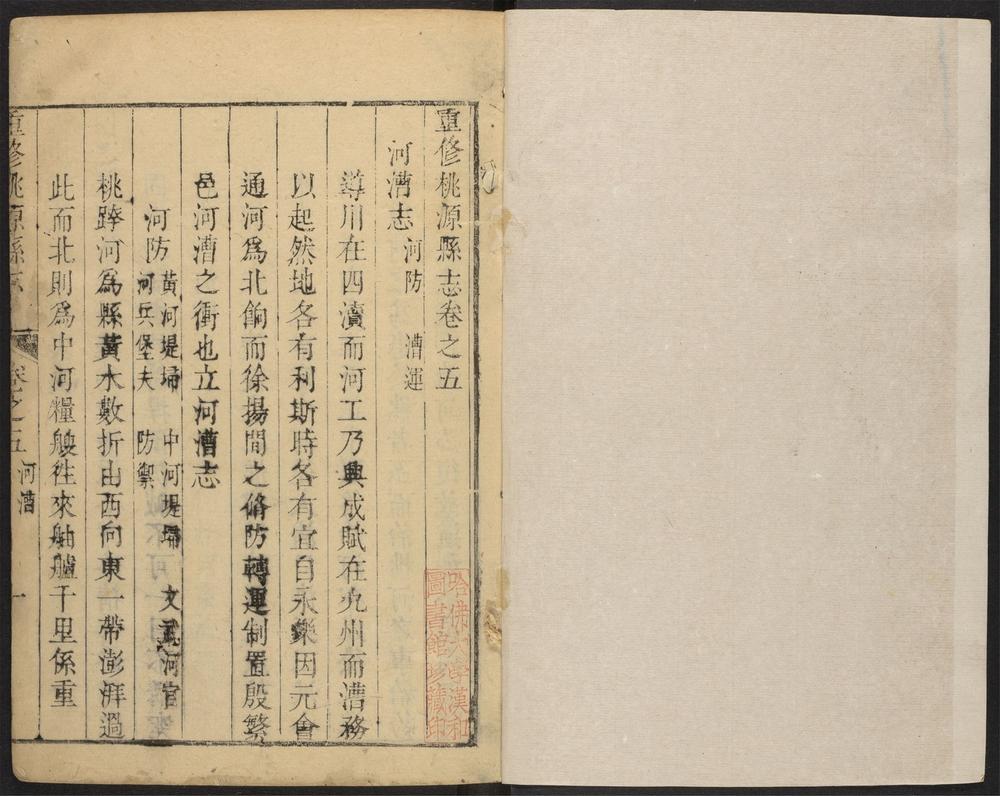 重修桃源縣志卷之五
河漕志 河防 漕運
導川在四瀆而河工乃興成賦在九州而漕務
以起然地各有利斯時各有宜自永樂因元會
通河爲北餉而徐揚間之脩防轉運制置殷繁
邑河漕之衝也立河漕志
河防 黃河堤埽 中河堤埽 文武河官
河兵堡夫 防禦
桃踤河爲縣黃水數折由西向東一帶澎湃過
此而北則爲中河糧艘徃來舳艫千里係重
重修桃源縣志 卷之五 河漕 一
哈佛大學漢和
圖書館珍藏印